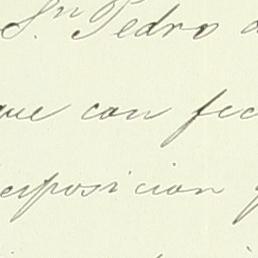 Sn Pedro
que con fec
exposicion